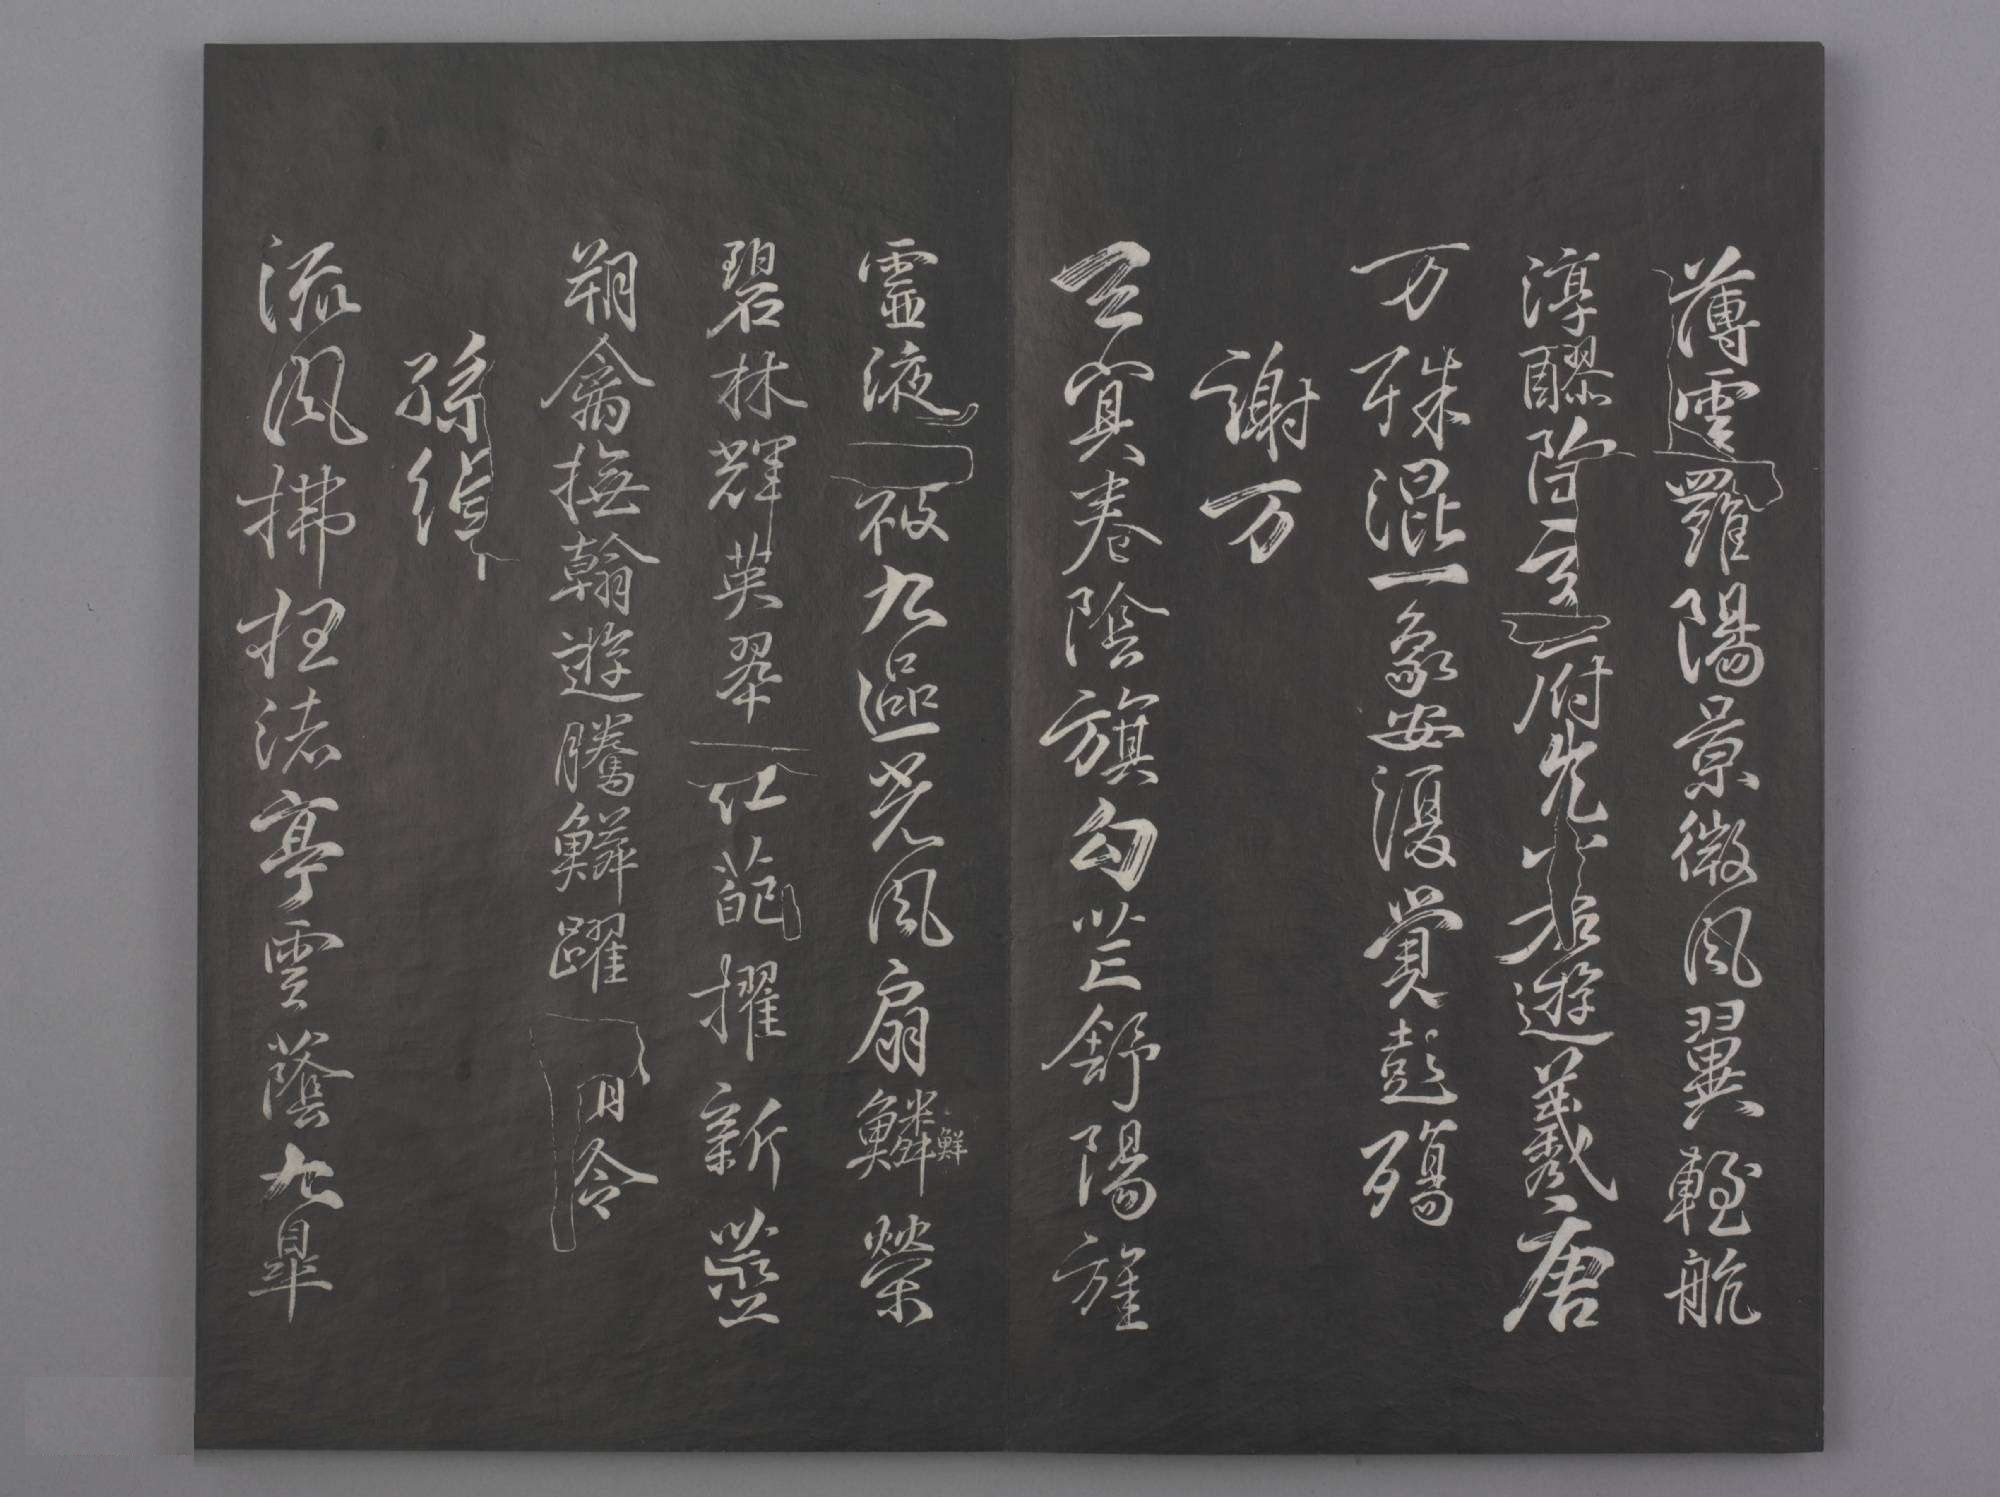 薄雲羅陽景微風翼輕航
淳醪陶玄府兀若遊羲唐
万殊混一象安復覺彭殤
謝万
玄冥卷陰旗勾芒舒陽旌
靈液被九區光風扇鱗鮮榮
碧林輝英翠紅葩擢新莖
翔禽撫翰遊騰鱗躍清泠
孫綽
流風拂枉渚亭雲蔭九皋